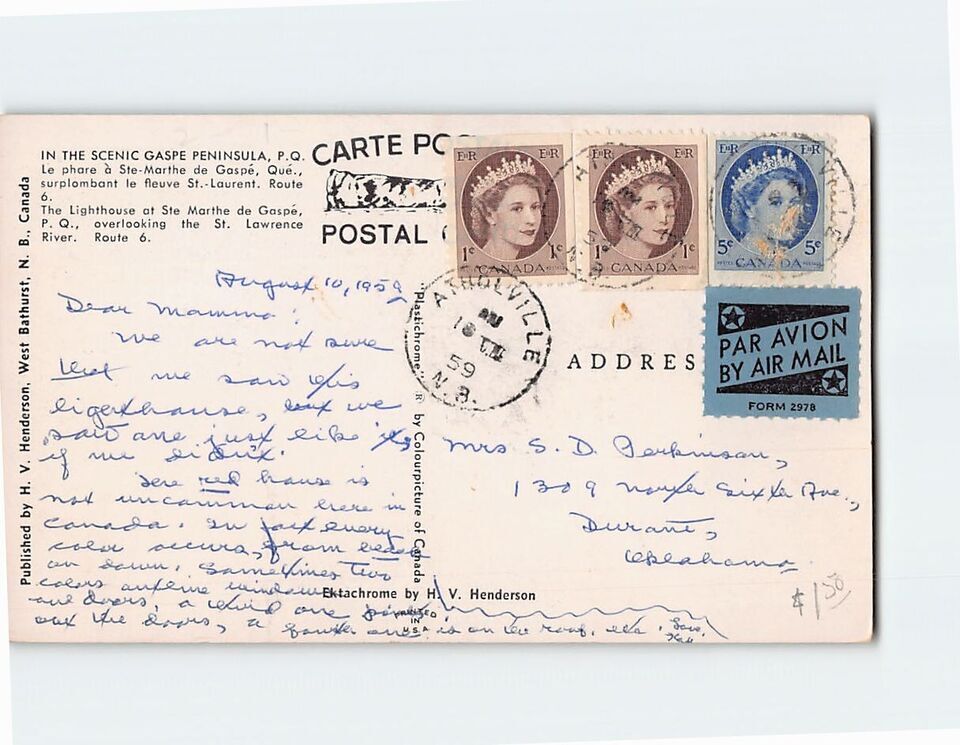 IN THE SCENIC GASPE PENINSULA, P.Q.
Le phare à Ste-Marthe de Gaspé, Qué.,
surplombant le fleuve St.-Laurent. Route
6.
The Lighthouse at Ste Marthe de Gaspé,
P. Q., overlooking the St. Lawrence
River. Route 6.
Published by H. V. Henderson, West Bathurst, N. B., Canada
CARTE POS
POSTAL
EIIR EIIR
1c 1c
CANADA
POSTES POSTAGE
EIIR EIIR
1c 1c
CANADA
POSTES POSTAGE
EIIR EIIR
5c 5c
CANADA
POSTES POSTAGE
ATHOLVILLE
AM
10 VIII
59
N.B.
PAR AVION
BY AIR MAIL
FORM 2978
ADDRES
August 10, 1959
Dear Mamma:
We are not sure
that we saw this
lighthouse, but we
saw one just like it,
if we didn't.
The red house is
not uncommon here in
Canada. In fact every
color occurs, from
on down. Sometimes two
colors outline windows
and doors, a third one
out the doors, a fourth one is on the roof, etc.
Plastichrome ® by Colourpicture of Canada
Mrs S. D. Perkinson,
1309 North Sixth Ave.,
Durant,
Oklahoma.
Ektachrome by H. V. Henderson
PRINTED
IN
U.S.A.
$1.50